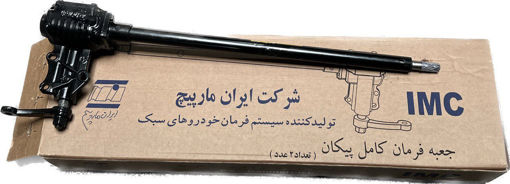 شرکت ایران مارپیچ
IMC
تولیدکننده سیستم فرمان خودروهای سبک
ایران مارپیچ
جعبه فرمان کامل پیکان (تعداد ۲ عدد)